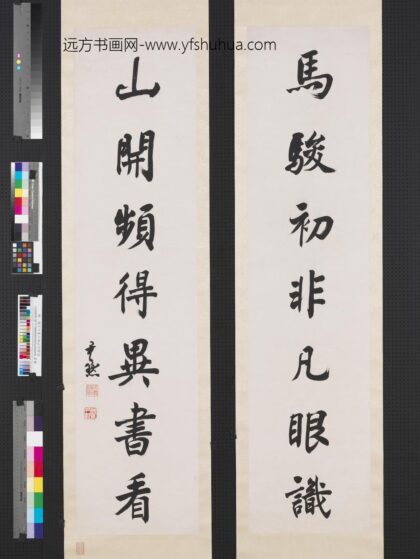 远方书画网-www.yfshuhua.com
馬駿初非凡眼識
山開頻得異書看
尹默